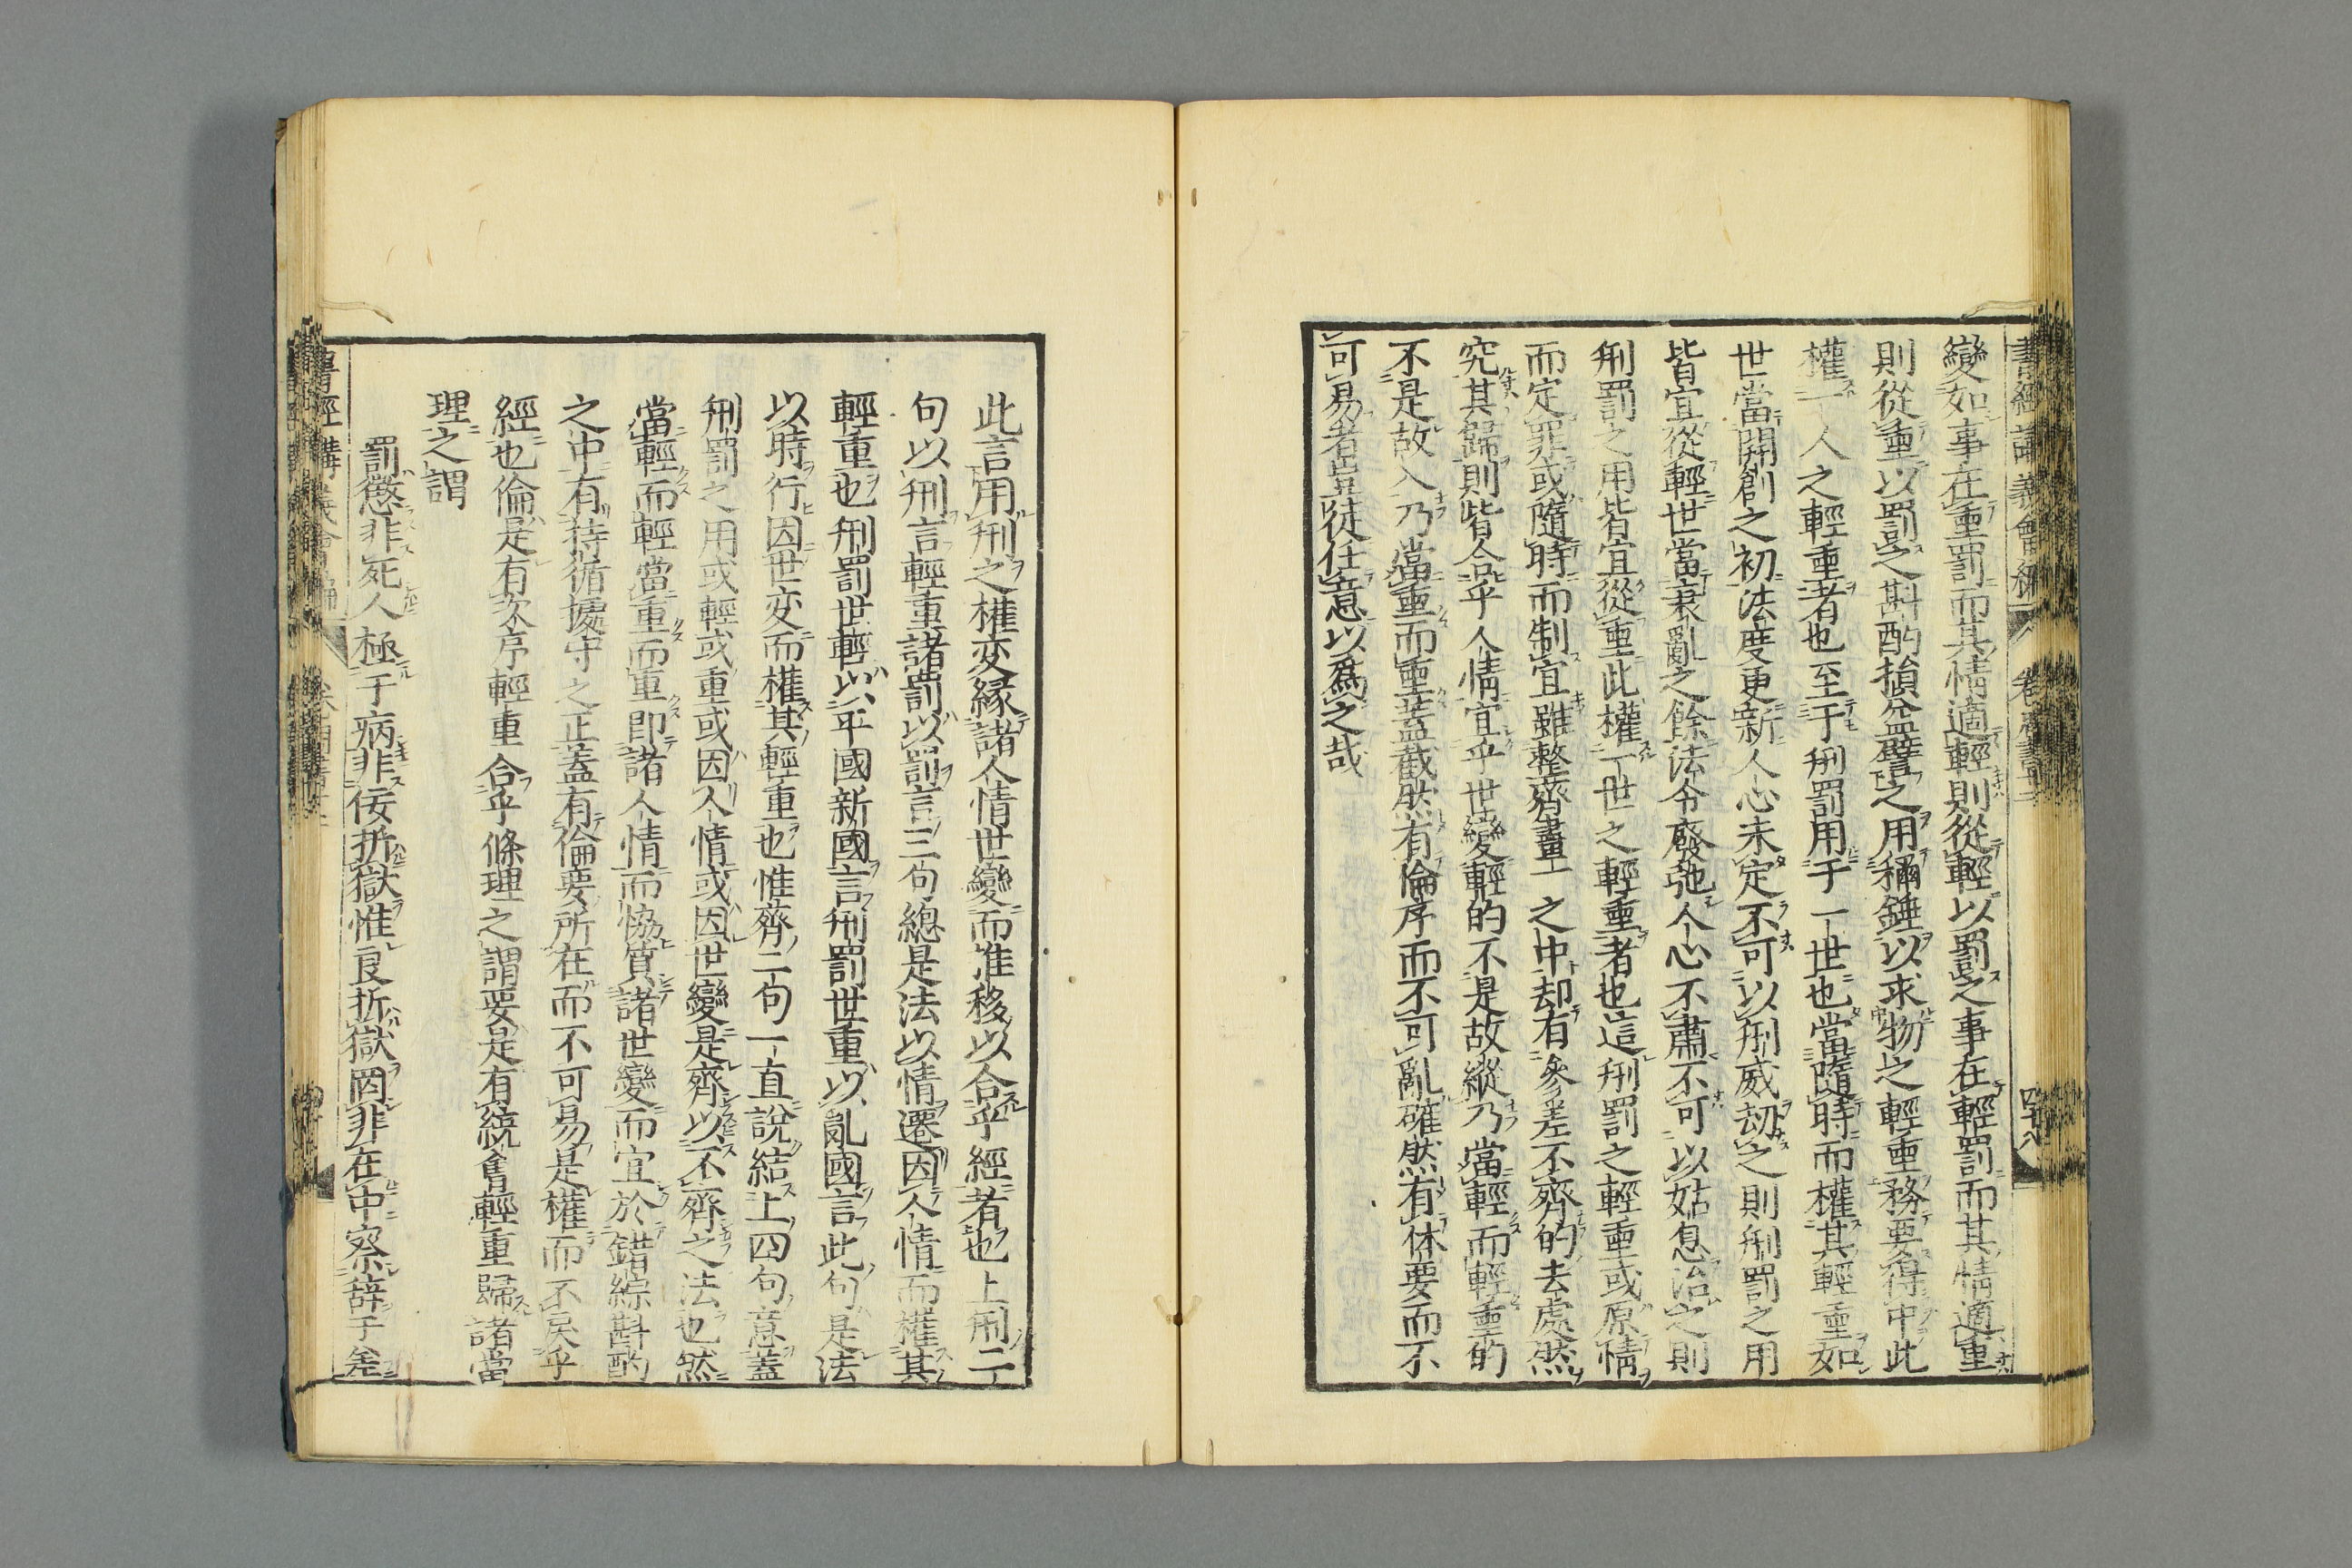 書經講義會編 卷 四十八
變如事在重罰而其情適輕則從輕以罰之事在輕罰而其情適重
則從重以罰之斟酌損益譬之用稱錘以求物之輕重務要得中此
權一人之輕重者也至于刑罰用于一世也當隨時而權其輕重如
世當開創之初法度更新人心未定不可以刑威刼之則刑罰之用
皆宜從輕世當衰亂之餘法令廢弛人心不肅不可以姑息治之則
刑罰之用皆宜從重此權一世之輕重者也這刑罰之輕重或原情
而定罪或隨時而制宜雖整齊畫一之中却有參差不齊的去處然
究其歸則皆合乎人情宜乎世變輕的不是故縱乃當輕而輕重的
不是故入乃當重而重蓋截然有倫序而不可亂確然有体要而不
可易者豈徒任意以爲之哉
此言用刑之權変緣諸人情世變而准移以合乎經者也上刑二
句以刑言輕重諸罰以罰言三句總是法以情遷因人情而權其
輕重也刑罰世輕以平國新國言刑罰世重以亂國言此句是法
以時行因世変而權其輕重也惟齊二句一直說結上四句意蓋
刑罰之用或輕或重或因人情或因世變是齊以不齊之法也然
當輕而輕當重而重即諸人情而協質諸世變而宜於錯綜斟酌
之中有持循據守之正蓋有倫要所在而不可易是權而不戾乎
經也倫是有次序輕重合乎條理之謂要是有統會輕重歸諸當
理之謂
罰懲非死人極于病非佞折獄惟良折獄罔非在中察辭于差
書經講義會編